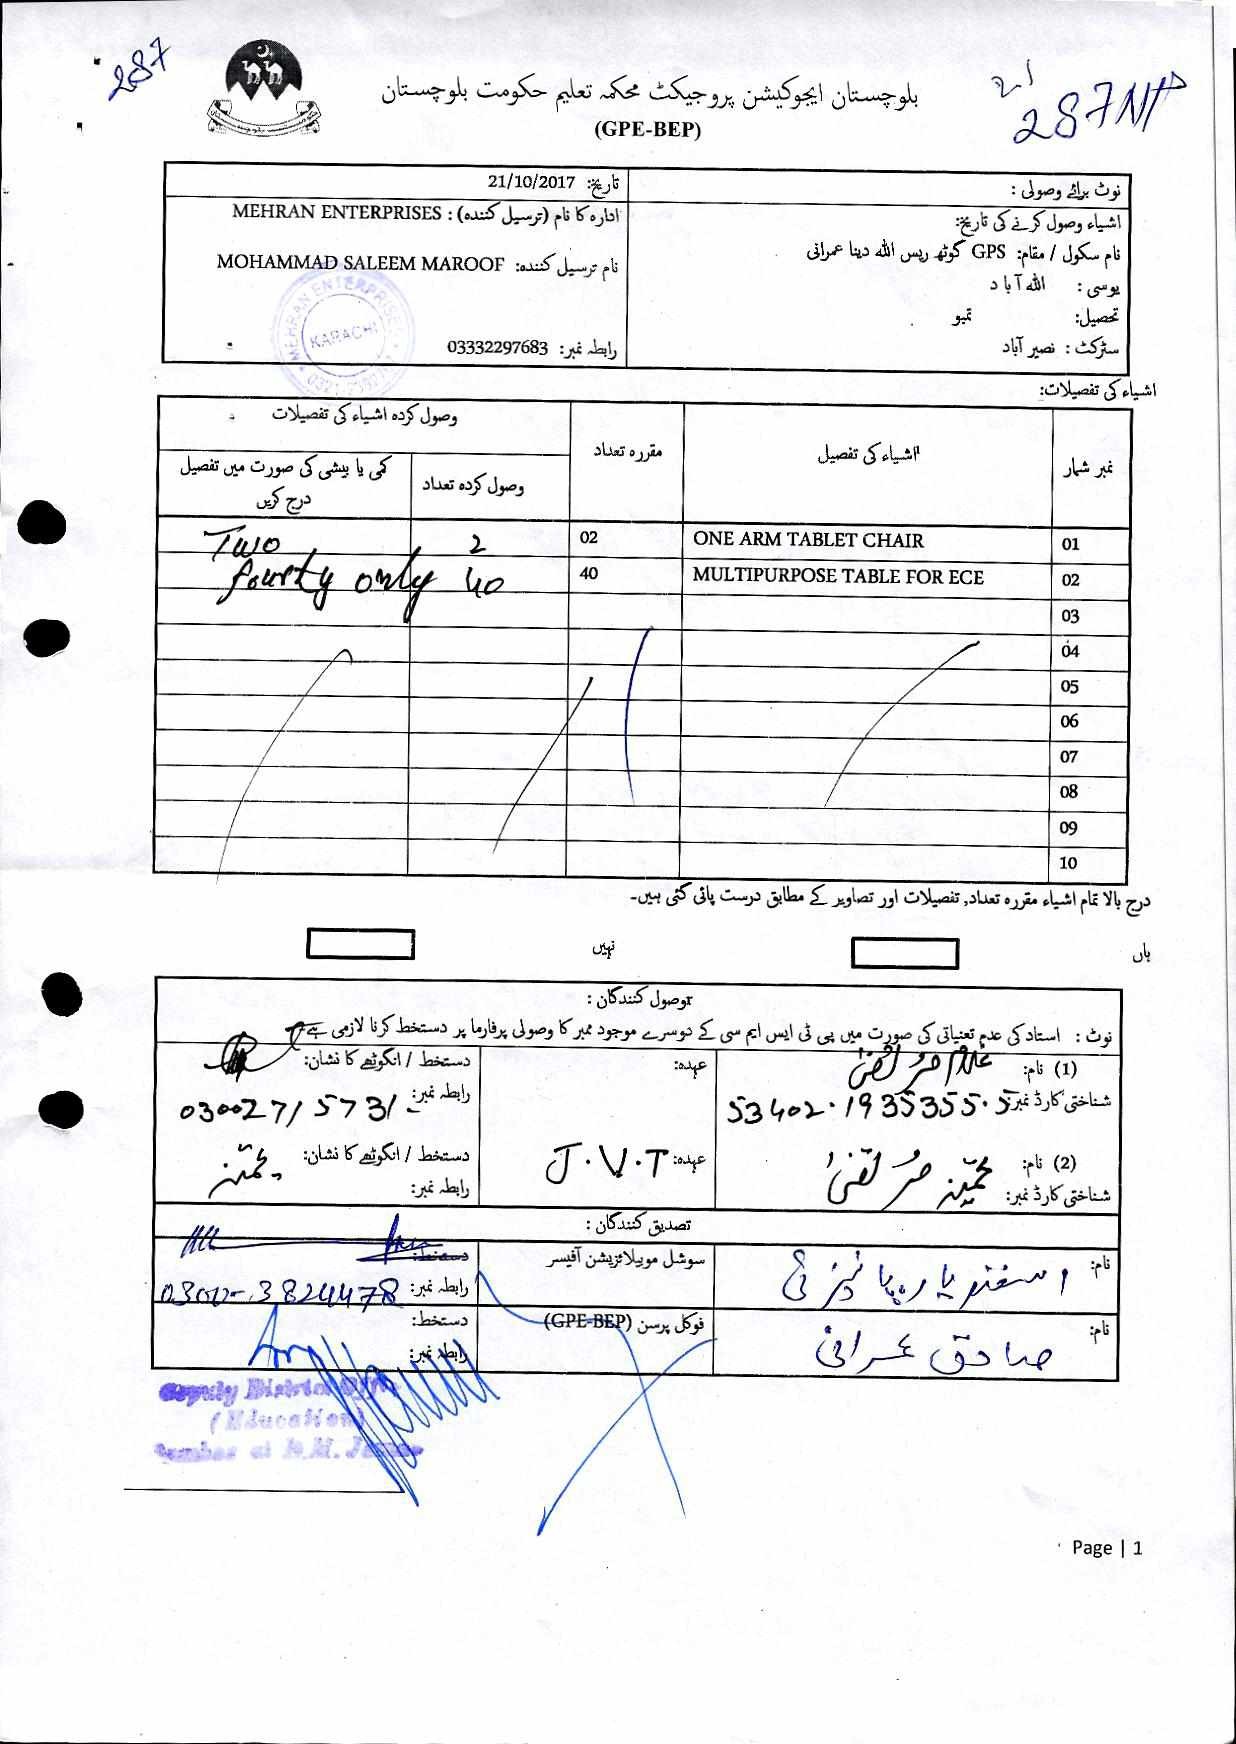 287
21
287NP
بلوچستان ایجوکیشن پروجیکٹ محکمہ تعلیم حکومت بلوچستان
(GPE-BEP)
نوٹ برائے وصولی :
تاریخ: 21/10/2017
اشیاء وصول کرنے کی تاریخ:
ادارہ کا نام (ترسیل کنندہ) : MEHRAN ENTERPRISES
نام سکول / مقام: GPS گوٹھ ریس اللہ دینا عمرانی
نام ترسیل کنندہ: MOHAMMAD SALEEM MAROOF
یوسی : اللہ آباد
تحصیل: تمبو
سٹرکٹ : نصیر آباد
رابطہ نمبر: 03332297683
MEHRAN ENTERPRISES
KARACHI
اشیاء کی تفصیلات:
نمبر شمار
اشیاء کی تفصیل
مقررہ تعداد
وصول کردہ اشیاء کی تفصیلات
وصول کردہ تعداد
کمی یا بیشی کی صورت میں تفصیل
درج کریں
01 ONE ARM TABLET CHAIR 02 2 Two
02 MULTIPURPOSE TABLE FOR ECE 40 40 fourty only
03
04
05
06
07
08
09
10
درج بالا تمام اشیاء مقررہ تعداد, تفصیلات اور تصاویر کے مطابق درست پائی گئی ہیں۔
ہاں
نہیں
وصول کنندگان :
نوٹ : استاد کی عدم تعیناتی کی صورت میں پی ٹی ایس ایم سی کے دوسرے موجود ممبر کا وصولی پرفارما پر دستخط کرنا لازمی ہے
(1) نام: غلام مرتضیٰ
عہدہ:
دستخط / انگوٹھے کا نشان:
شناختی کارڈ نمبر: 53402-1935355-5
رابطہ نمبر: 03002715731
(2) نام: مرتضیٰ
عہدہ: J.V.T
دستخط / انگوٹھے کا نشان:
شناختی کارڈ نمبر:
رابطہ نمبر:
تصدیق کنندگان :
نام:
سوشل موبیلائزیشن آفیسر
دستخط:
رابطہ نمبر: 0300-3824478
نام: صادق عمرانی
فوکل پرسن (GPE-BEP)
دستخط:
رابطہ نمبر:
Deputy District
(Education)
at D.M.
Page | 1